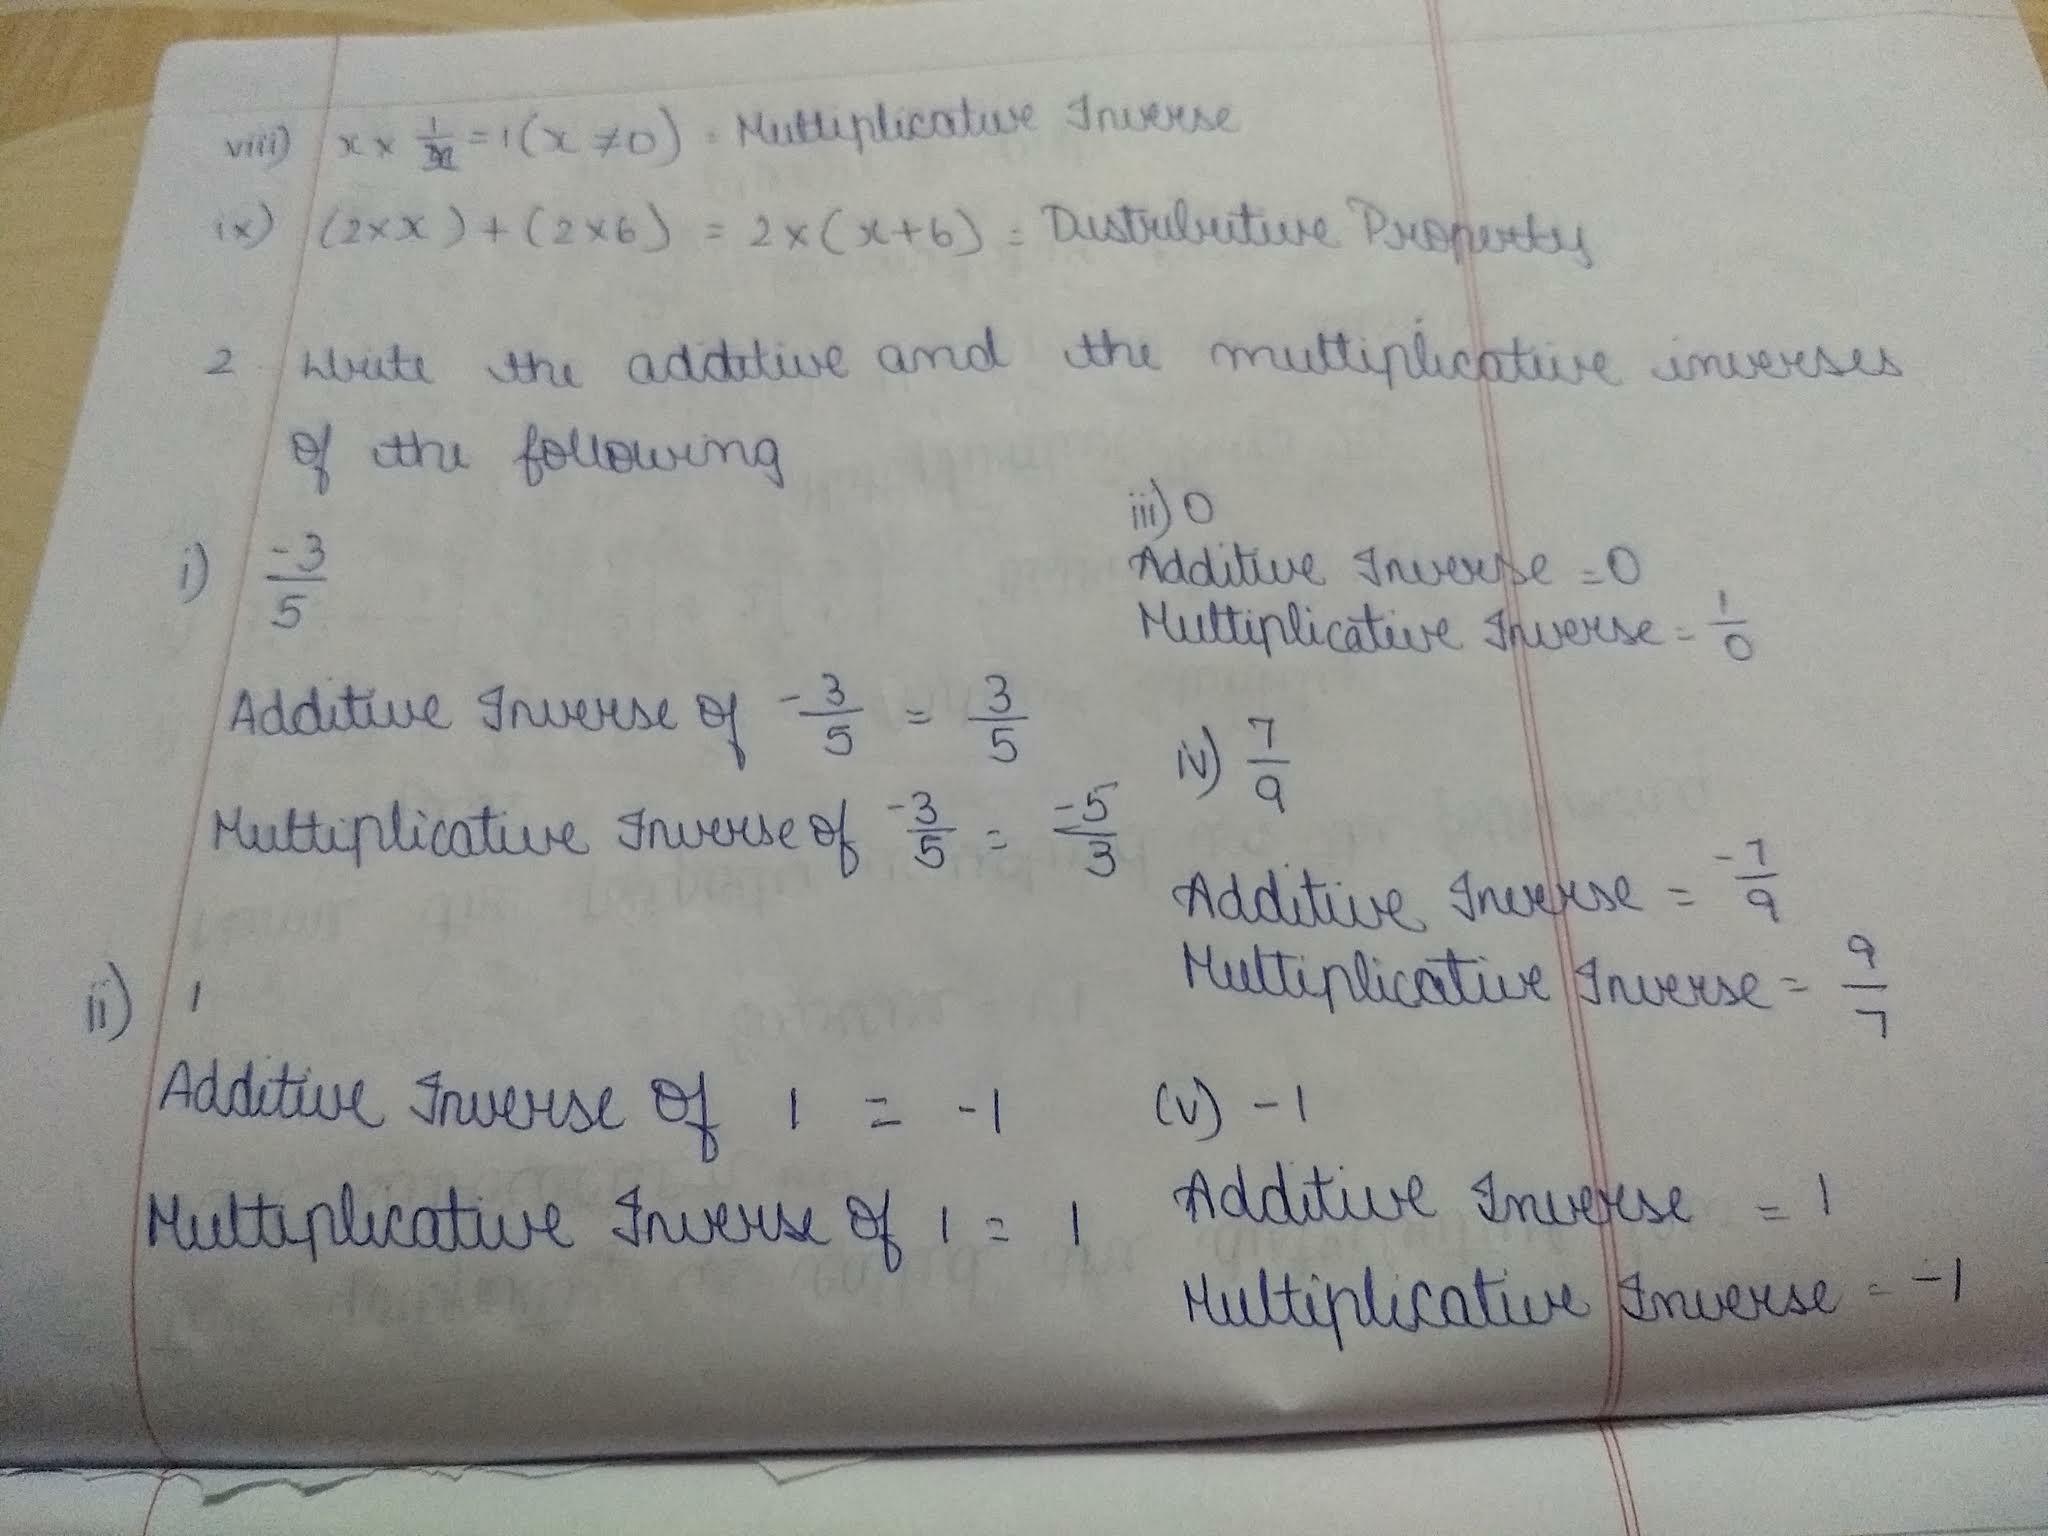 viii) x × 1/x = 1 (x ≠ 0) = Multiplicative Inverse
ix) (2×x) + (2×6) = 2×(x+6) = Distributive Property
2. Write the additive and the multiplicative inverses
of the following
i) -3/5
Additive Inverse of -3/5 = 3/5
Multiplicative Inverse of -3/5 = -5/3
ii) 1
Additive Inverse Of 1 = -1
Multiplicative Inverse Of 1 = 1
iii) 0
Additive Inverse = 0
Multiplicative Inverse = 1/0
iv) 7/9
Additive Inverse = -7/9
Multiplicative Inverse = 9/7
(v) -1
Additive Inverse = 1
Multiplicative Inverse = -1